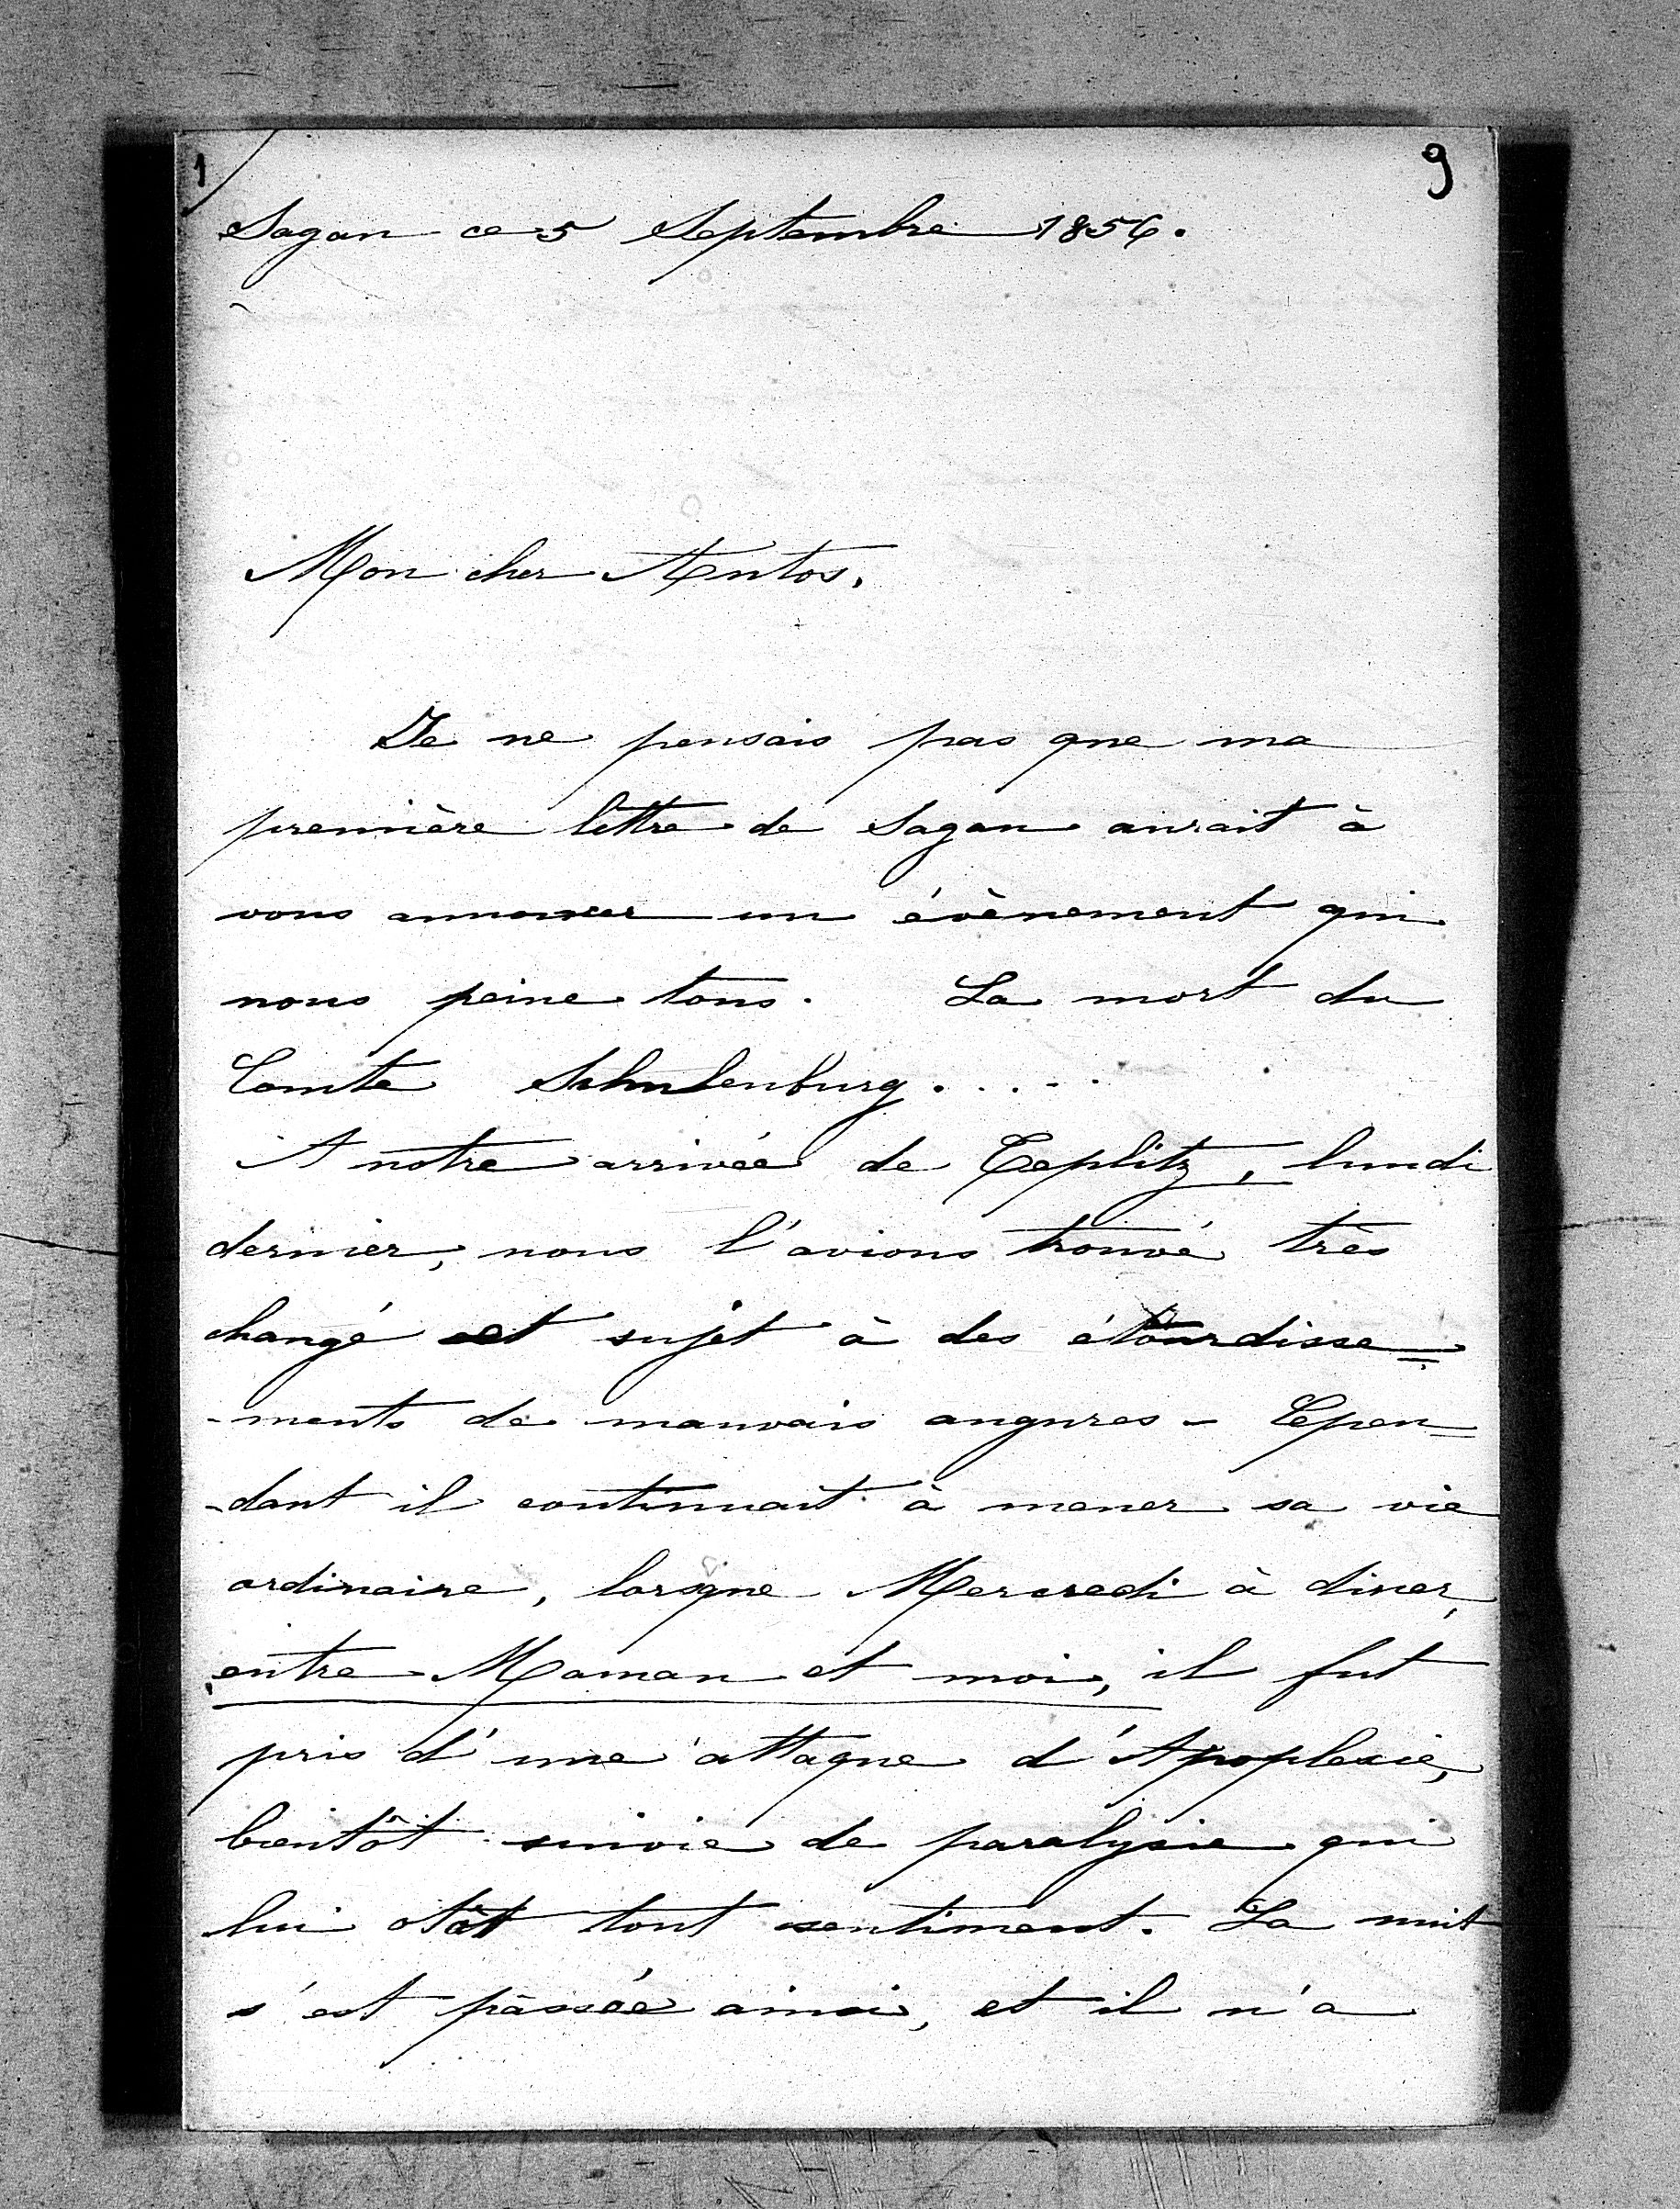 1/
9
Sagan ce 5 Septembre 1856.
Mon cher Antos.
Je ne pensais pas que ma
première lettre de Sagan aurait à
vous annoncer un évènement qui
nous peine tous. La mort du
Comte Schulenburg.....
A notre arrivée de Teplitz, lundi
dernier, nous l'avions trouvé très
changé et sujet à des étourdisse=
-ments de mauvais augures - Cepen=
-dant il continuait à mener sa vie
ordinaire, lorsque Mercredi à diner,
entre Maman et moi, il fut
pris d'une attaque d'Apoplexie,
bientôt suivie de paralysie qui
lui otât tout sentiment. La nuit
s'est passée ainsi, et il n'a